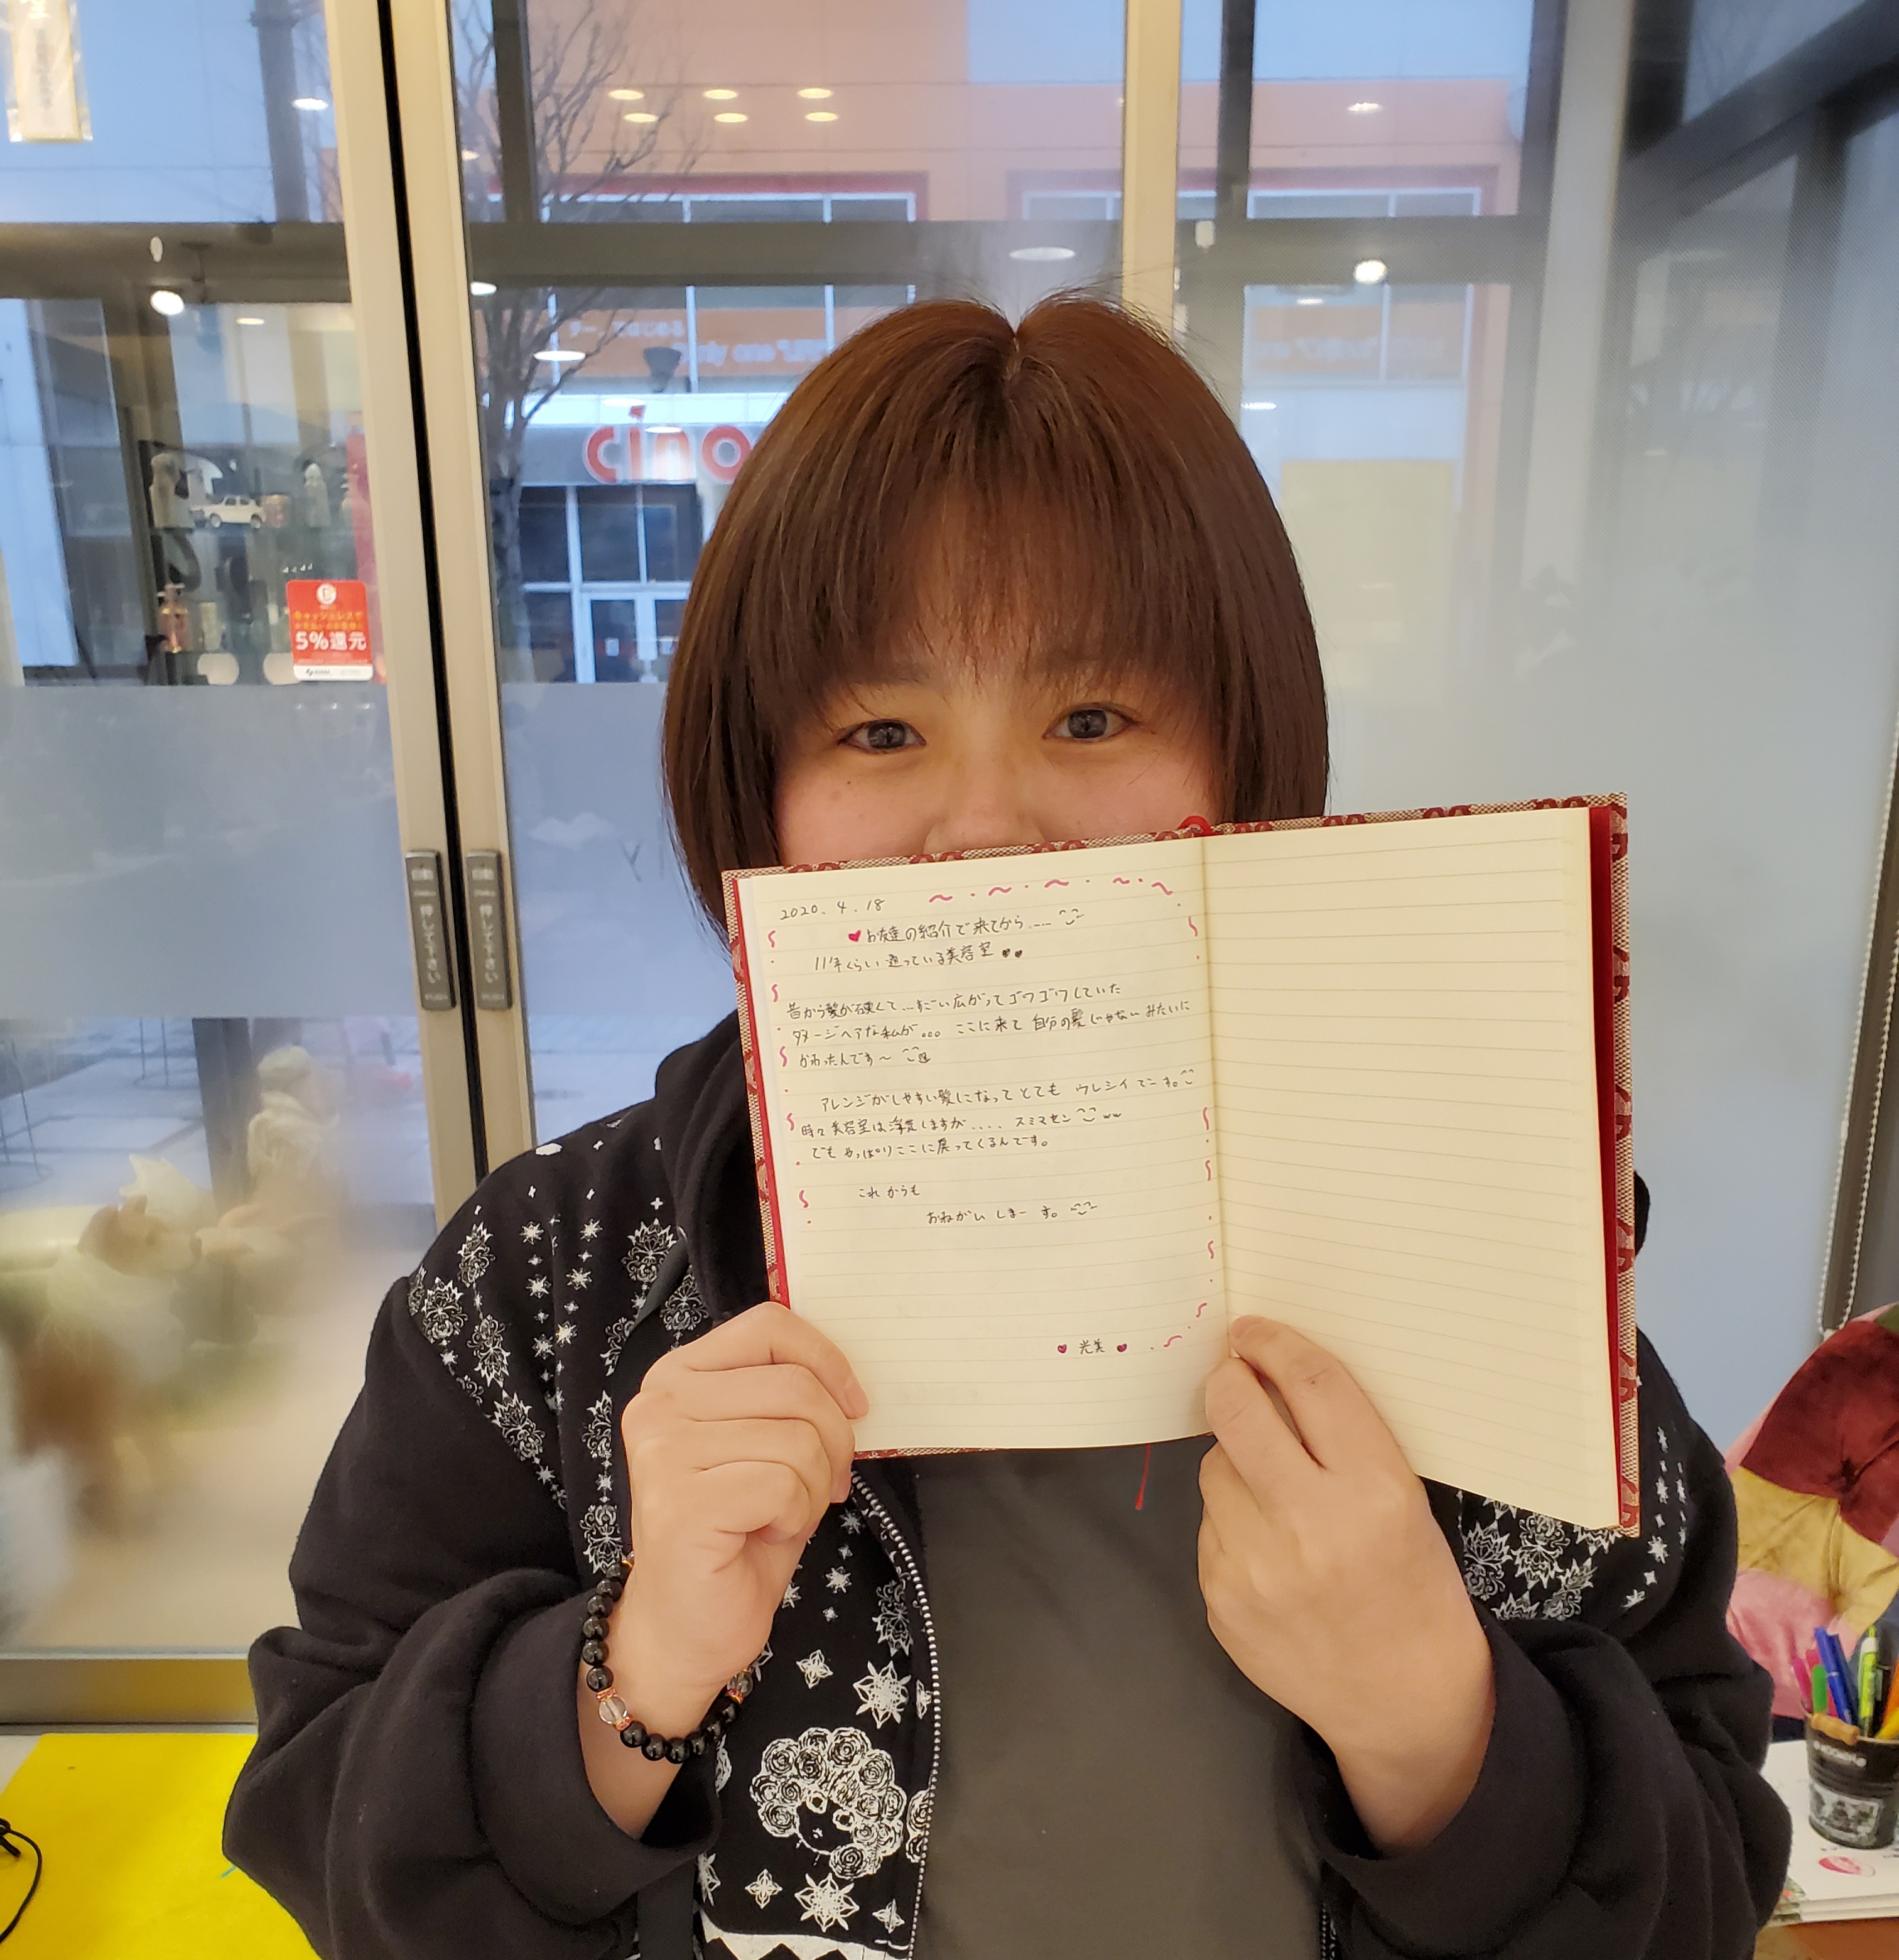 cino
キャッシュレスで
5%還元
自動
押して下さい
自動
押して下さい
2020. 4. 18
お友達の紹介で来てから....
11年くらい通っている美容室
昔から髪が硬くて...すごい広がってゴワゴワしていた
ダメージヘアな私が... ここに来て 自分の髪じゃないみたいに
かわったんです〜
アレンジがしやすい髪になって とても ウレシイ でーす。
時々美容室は浮気しますが.... スミマセン ww
でも やっぱりここに戻ってくるんです。
これからも
おねがい しまーす。
光美